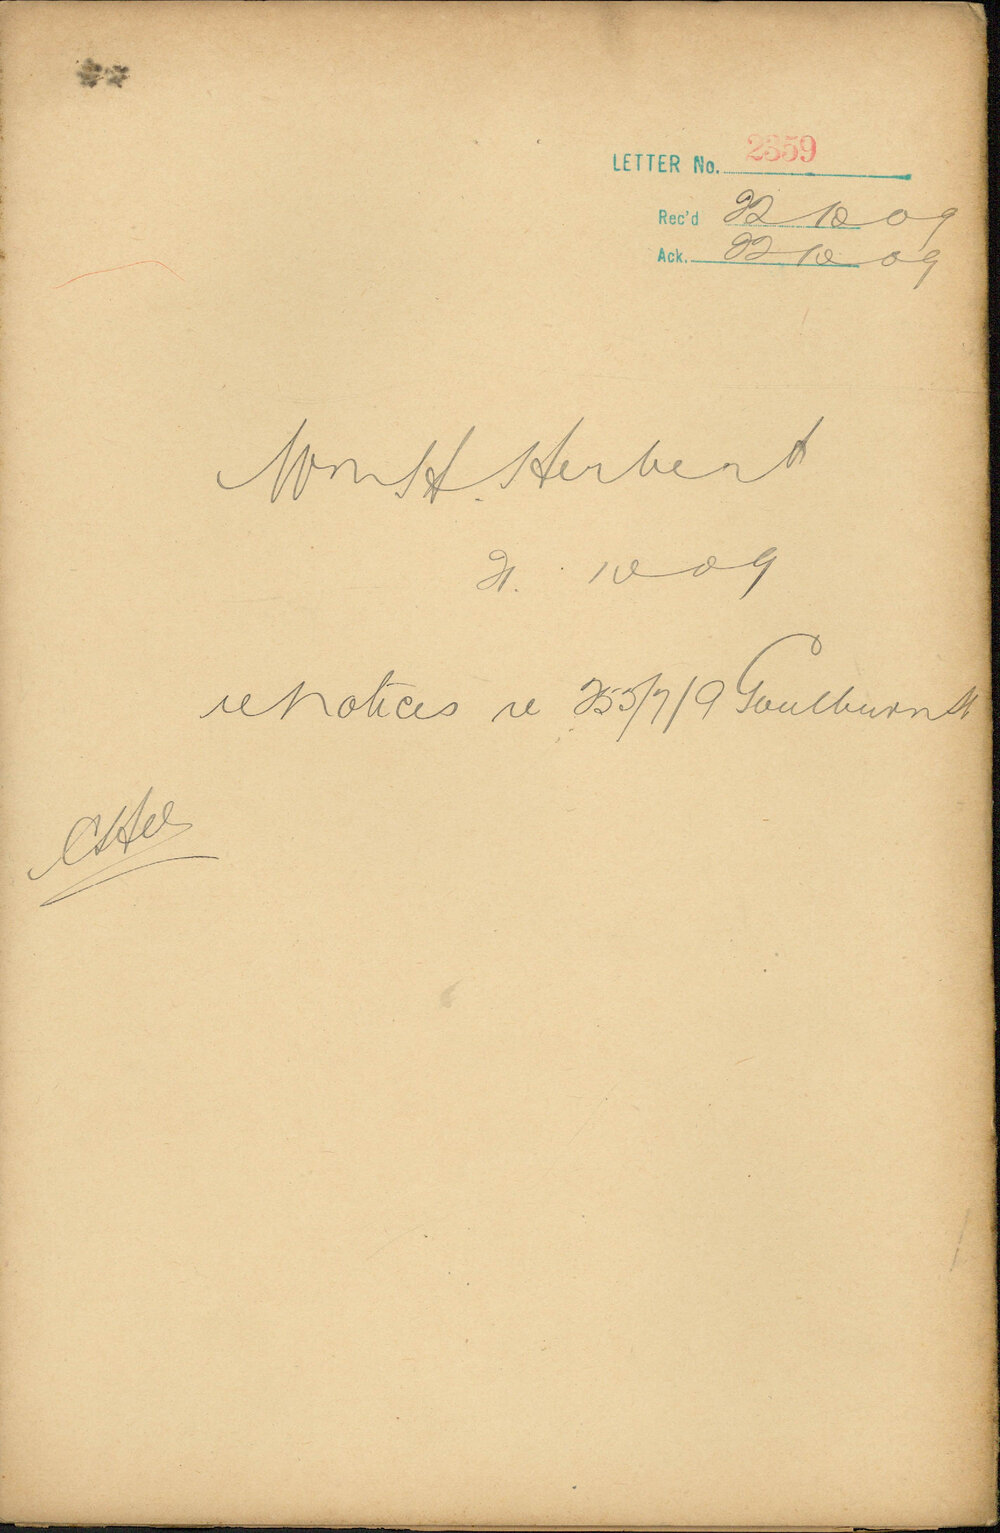 LETTER No. 2359
Rec'd 22 10 09
Ack. 22 10 09
Wm H. Herbert
21. 10 09
re notices re 255/7/9 Goulburn St